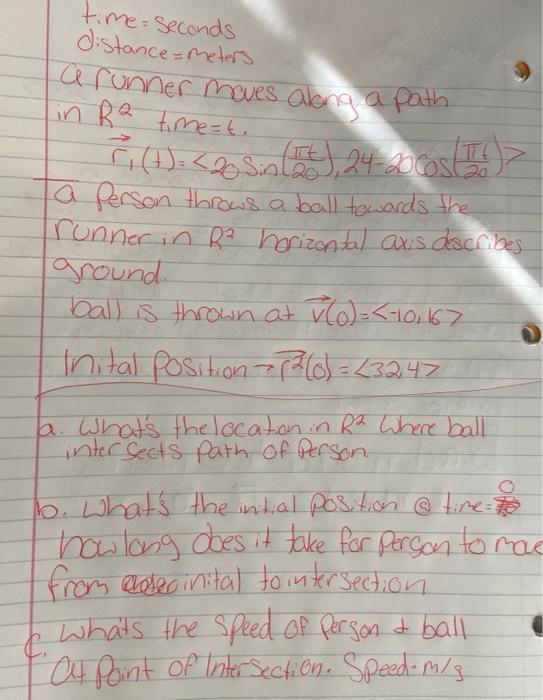 time = seconds
distance = meters
a runner moves along a path
in R² time=t.
r₁(t)=<20 Sin(πt/20), 24-20Cos(πt/20)>
a person throws a ball towards the
runner in R² horizontal axis describes
ground.
ball is thrown at v(0)=<-10,16>
Inital Position → r²(0) = <32,4>
a. What's the location in R² Where ball
intersects path of Person.
b. What's the intial position @ time= 0
how long does it take for person to move
from inital to intersection
c. Whats the Speed of Person & ball
at Point of Intersection. Speed=m/s